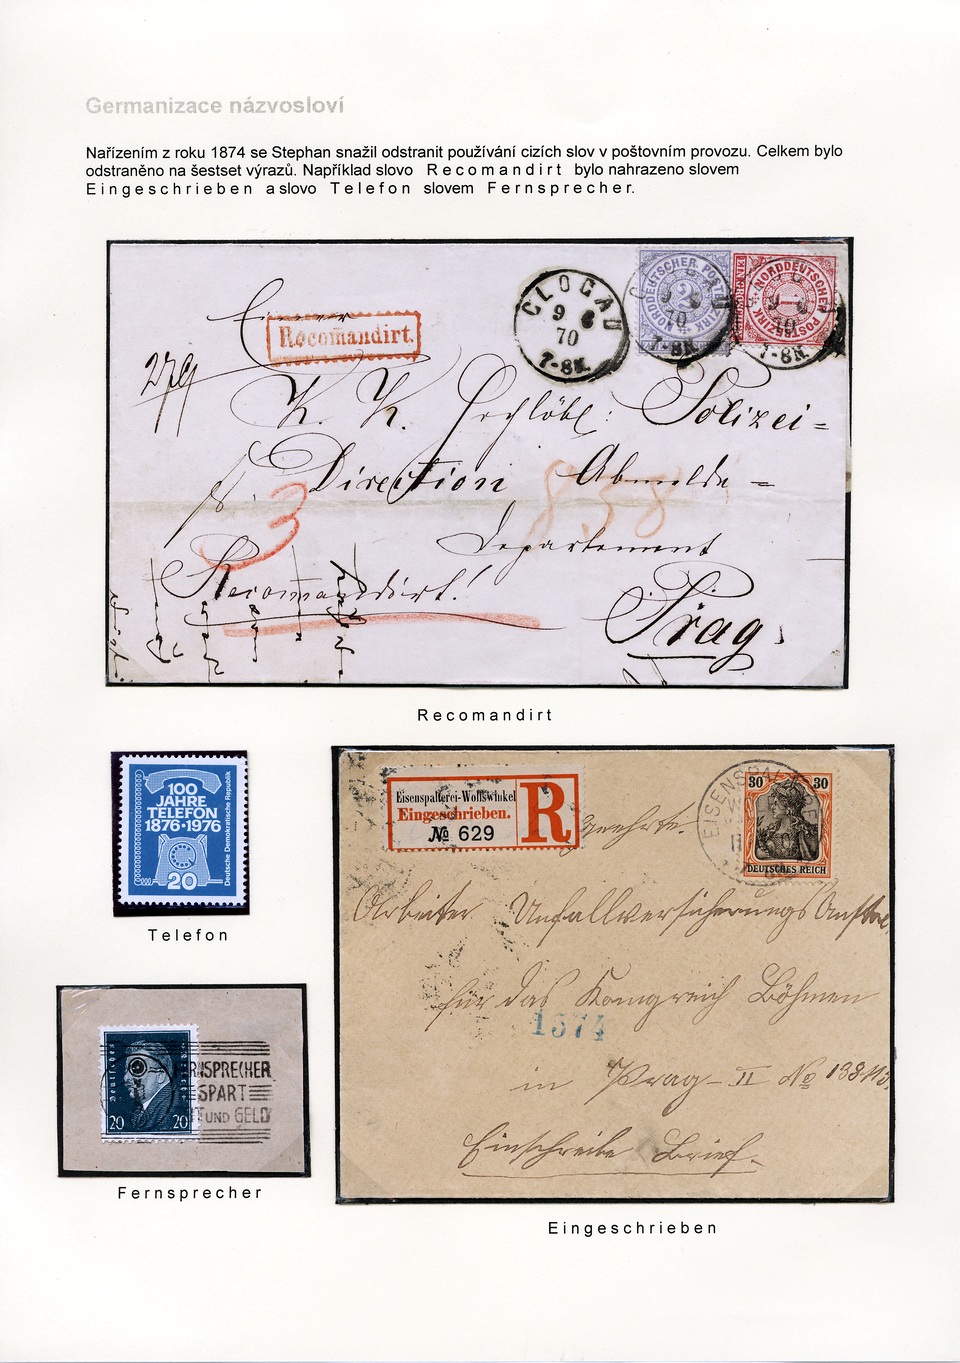 Germanizace názvosloví
Nařízením z roku 1874 se Stephan snažil odstranit používání cizích slov v poštovním provozu. Celkem bylo
odstraněno na šestset výrazů. Například slovo Recomandirt bylo nahrazeno slovem
Eingeschrieben a slovo Telefon slovem Fernsprecher.
Recomandirt.
CLOGAU
9 6
70
7-8N.
NORDDEUTSCHER POSTBEZIRK
2
NORDDEUTSCHER POSTBEZIRK
EIN GROSCHEN
1
279
K. K. Polizei=
Direction
858
3
Departement
Recomandirt!
Prag
Recomandirt
100
JAHRE
TELEFON
1876·1976
20
Deutsche Demokratische Republik
Telefon
FERNSPRECHER
SPART
UND GELD
20 20
Fernsprecher
Eisenspalterei-Wolfswinkel
Eingeschrieben.
№ 629
R
30 30
DEUTSCHES REICH
EISENSPAL
Arbeiter Unfallversicherungs Anstalt
für das Königreich Böhmen
1574
in Prag-II No
Einschreibe Brief.
Eingeschrieben